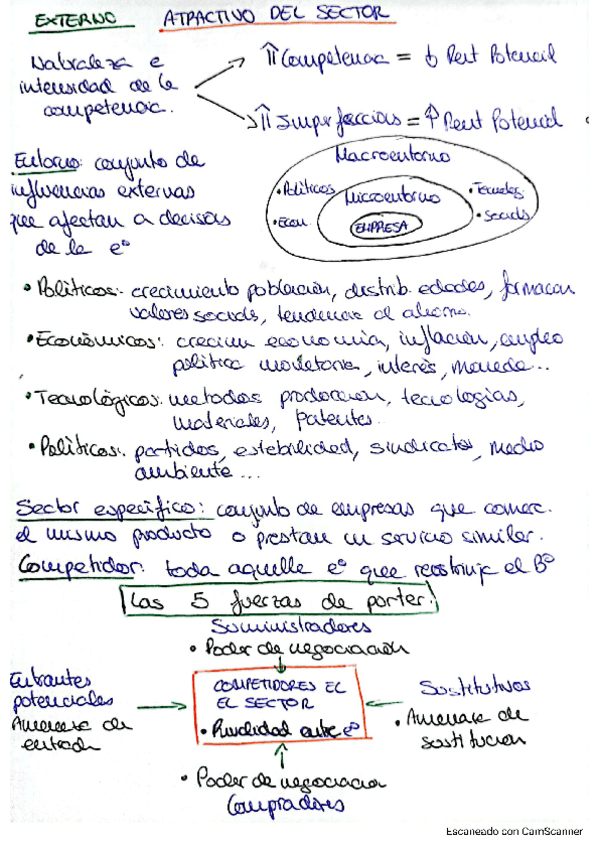 EXTERNO ATRACTIVO DEL SECTOR
Naturaleza e
intensidad de la
competencia.
⇑ Competencia = ↓ Rent Potencial
⇑ Imperfeccions = ↑ Rent Potencial
Entorno: conjunto de
influencias externas
que afectan a decisions
de la eº
Macroentorno
• Políticos
• Econ.
Microentorno
EMPRESA
• Tecnolog.
• Socials
• Políticos: crecimiento población, distrib. edades, formacion
valores socials, tendencia al ahorro.
• Económicos: crecim economia, inflación, empleo
política monetaria, interés, moneda...
• Tecnológicos: metodos produccion, tecnologias,
materiales, patentes.
• Políticos: partidos, estabilidad, sindicatos, medio
ambiente...
Sector específico: conjunto de empresas que comerc.
el mismo producto o prestan un servicio similar.
Competidor: toda aquella eº que restrinje el Bº
Las 5 fuerzas de porter.
Suministradores
• Poder de negociación
Entrantes
potenciales
Amenaza de
entrada
COMPETIDORES EC
EL SECTOR
• Rivalidad entre eº
Sustitutivos
• Amenaza de
sustitucion
• Poder de negociacion
Compradores
Escaneado con CamScanner